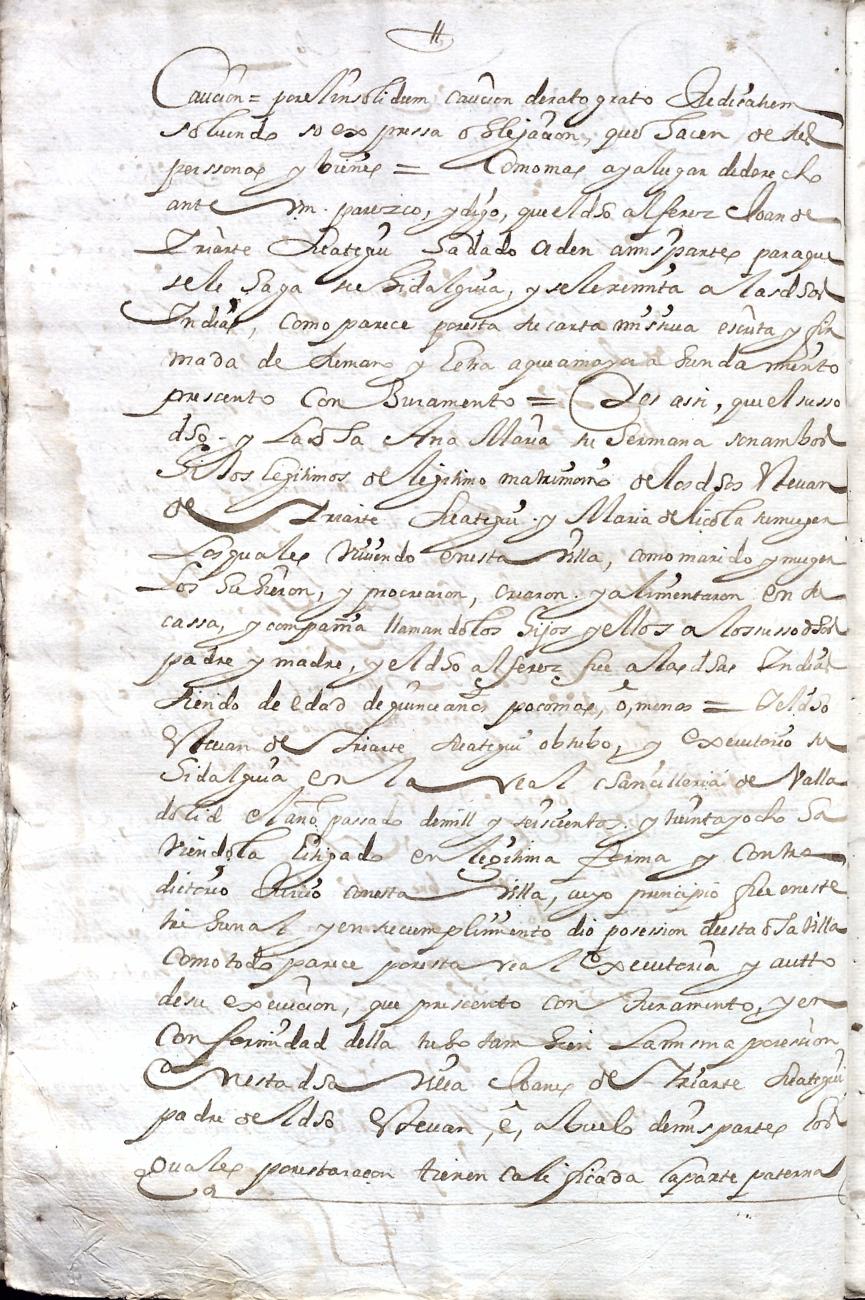 Caucion = por el insolidum caucion de rato grato Judicatum
solvendo so expressa oblejacion, que hacen de sus
perssonas y bienes = Como mas aya lugar de derecho
ante Vm. parezco, y digo, que el dho alferez Joan de
Yriarte Reategui ha dado orden a mis partes para que
se le haga su hidalguia, y se le remita a las dhas
Indias, como parece por esta su carta missiva escrita y fir
mada de su mano y letra que a mayor abundamiento
pressento con Juramento = Y es assi, que el susso
dho - y la dha Ana Maria su hermana son ambos
hijos legitimos de legitimo matrimonio de los dhos Stevan
de Yriarte Reategui y Maria de licola su muger
Los quales viviendo en esta Villa, como marido y muger
los hubieron, y procrearon, criaron y alimentaron en su
cassa, y compañia llamandolos hijos y ellos a los susso dhos
padre y madre, y el dho alferez fue a las dhas Indias
siendo de edad de quince años poco mas, ô, menos = Y el dho
Stevan de Yriarte Reategui obtubo, y executorio su
hidalguia en la real chancilleria de Valla
dolid el año passado de mill y seiscientos y treinta y ocho ha
viendola litigado en legitima forma y contra
dictorio Juicio con esta Villa, cuyo principio fue en este
tribunal y en su cumplimiento dio posession de esta dha Villa
como todo parece por esta real Executoria y autto
de su execucion, que pressento con Juramento, y en
conformidad della tubo tambien la misma possession
en esta dha Villa Joanes de Yriarte Reategui
padre del dho Stevan, ê, abuelo de mis partes los
quales por esta raçon tienen calificada la parte paterna